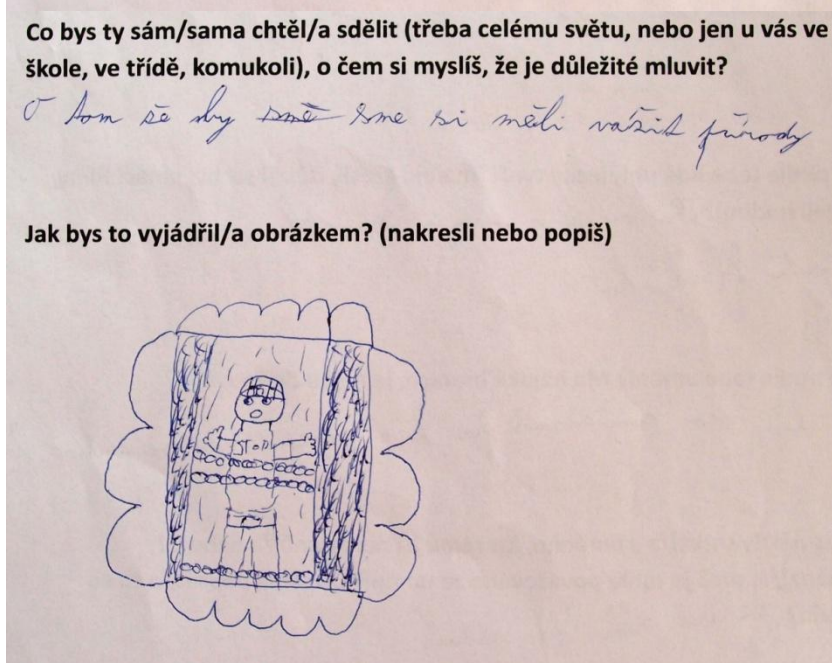 Co bys ty sám/sama chtěl/a sdělit (třeba celému světu, nebo jen u vás ve
škole, ve třídě, komukoli), o čem si myslíš, že je důležité mluvit?
O tom že by smě sme si měli vážit přírody
Jak bys to vyjádřil/a obrázkem? (nakresli nebo popiš)
STOP!